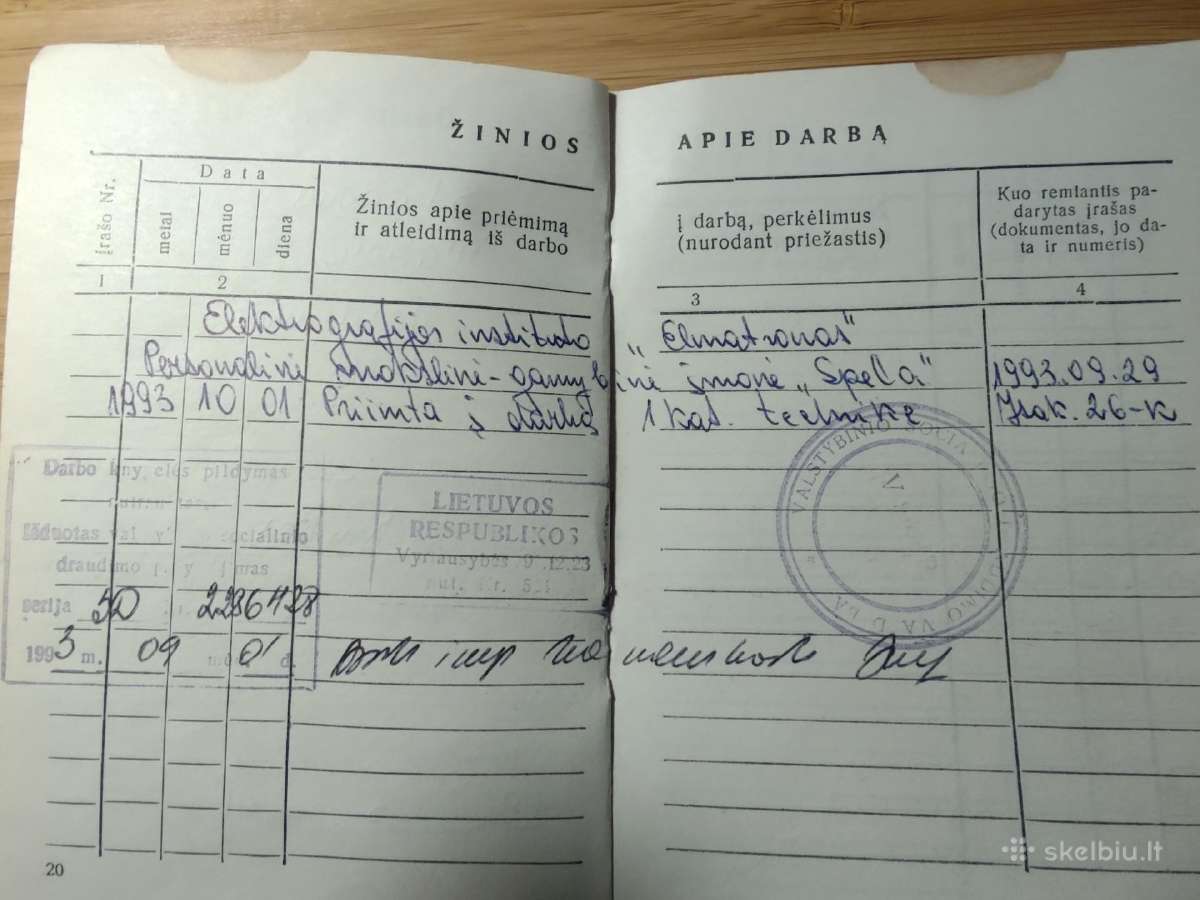 ŽINIOS APIE DARBĄ
Įrašo Nr.
Data
metai
mėnuo
diena
Žinios apie priėmimą
ir atleidimą iš darbo
į darbą, perkėlimus
(nurodant priežastis)
Kuo remiantis pa-
darytas įrašas
(dokumentas, jo da-
ta ir numeris)
1 2 3 4
Elektrografijos instituto „Elmatronas"
Personalinė mokslinė-gamybinė įmonė „Spela" 1993.09.29
1993 10 01 Priimta į darbą 1 kat. technike Įsak. 26-K
Darbo knygelės pildymas
Išduotas socialinio
draudimo
serija SD
1993 m. 09 01 d.
LIETUVOS
RESPUBLIKOS
Vyriausybės
VALSTYBINIO DRAUDIMO VALDYBA
20
skelbiu.lt